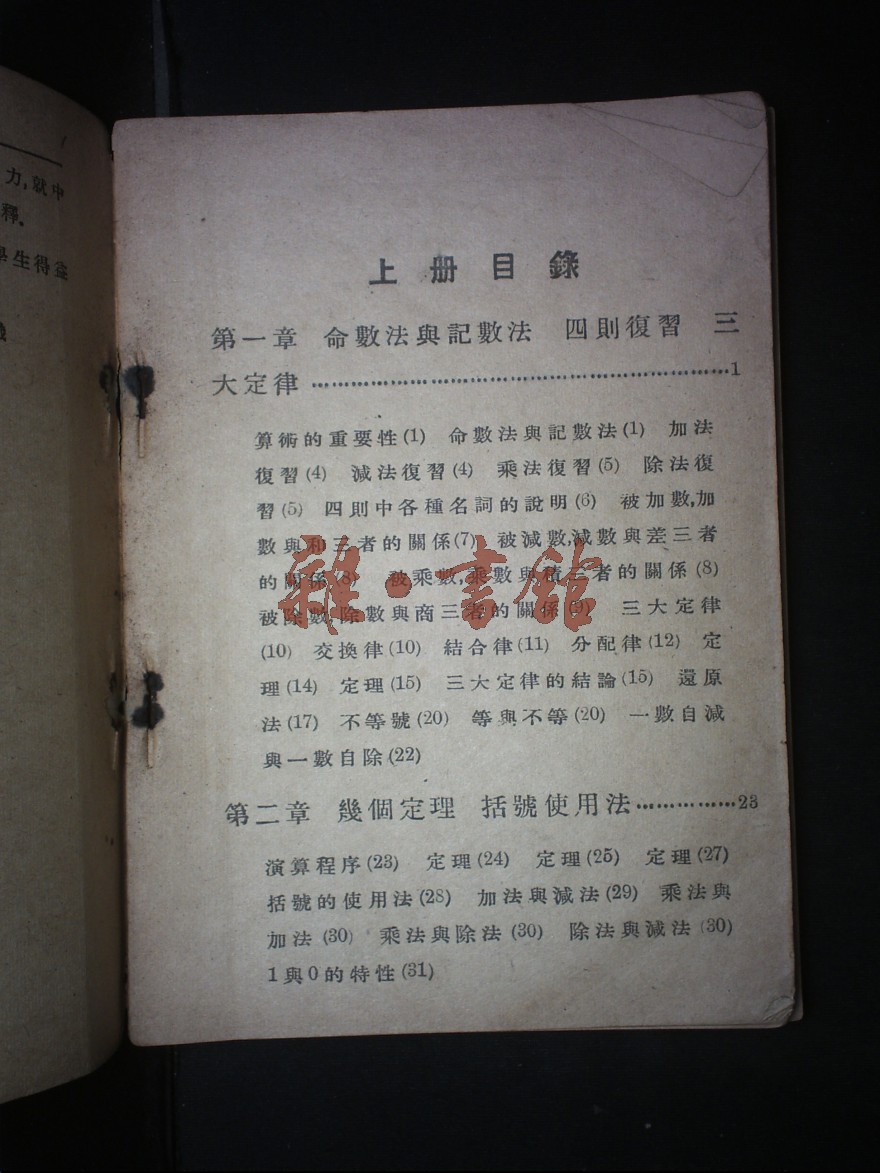 力,就中
釋.
學生得益
上册目錄
第一章 命數法與記數法 四則復習 三
大定律……………………………………………1
算術的重要性(1) 命數法與記數法(1) 加法
復習(4) 減法復習(4) 乘法復習(5) 除法復
習(5) 四則中各種名詞的說明(6) 被加數,加
數與和三者的關係(7) 被減數,減數與差三者
的關係(8) 被乘數,乘數與積三者的關係(8)
被除數,除數與商三者的關係(9) 三大定律
(10) 交換律(10) 結合律(11) 分配律(12) 定
理(14) 定理(15) 三大定律的結論(15) 還原
法(17) 不等號(20) 等與不等(20) 一數自減
與一數自除(22)
第二章 幾個定理 括號使用法……………23
演算程序(23) 定理(24) 定理(25) 定理(27)
括號的使用法(28) 加法與減法(29) 乘法與
加法(30) 乘法與除法(30) 除法與減法(30)
1與0的特性(31)
雜·書館